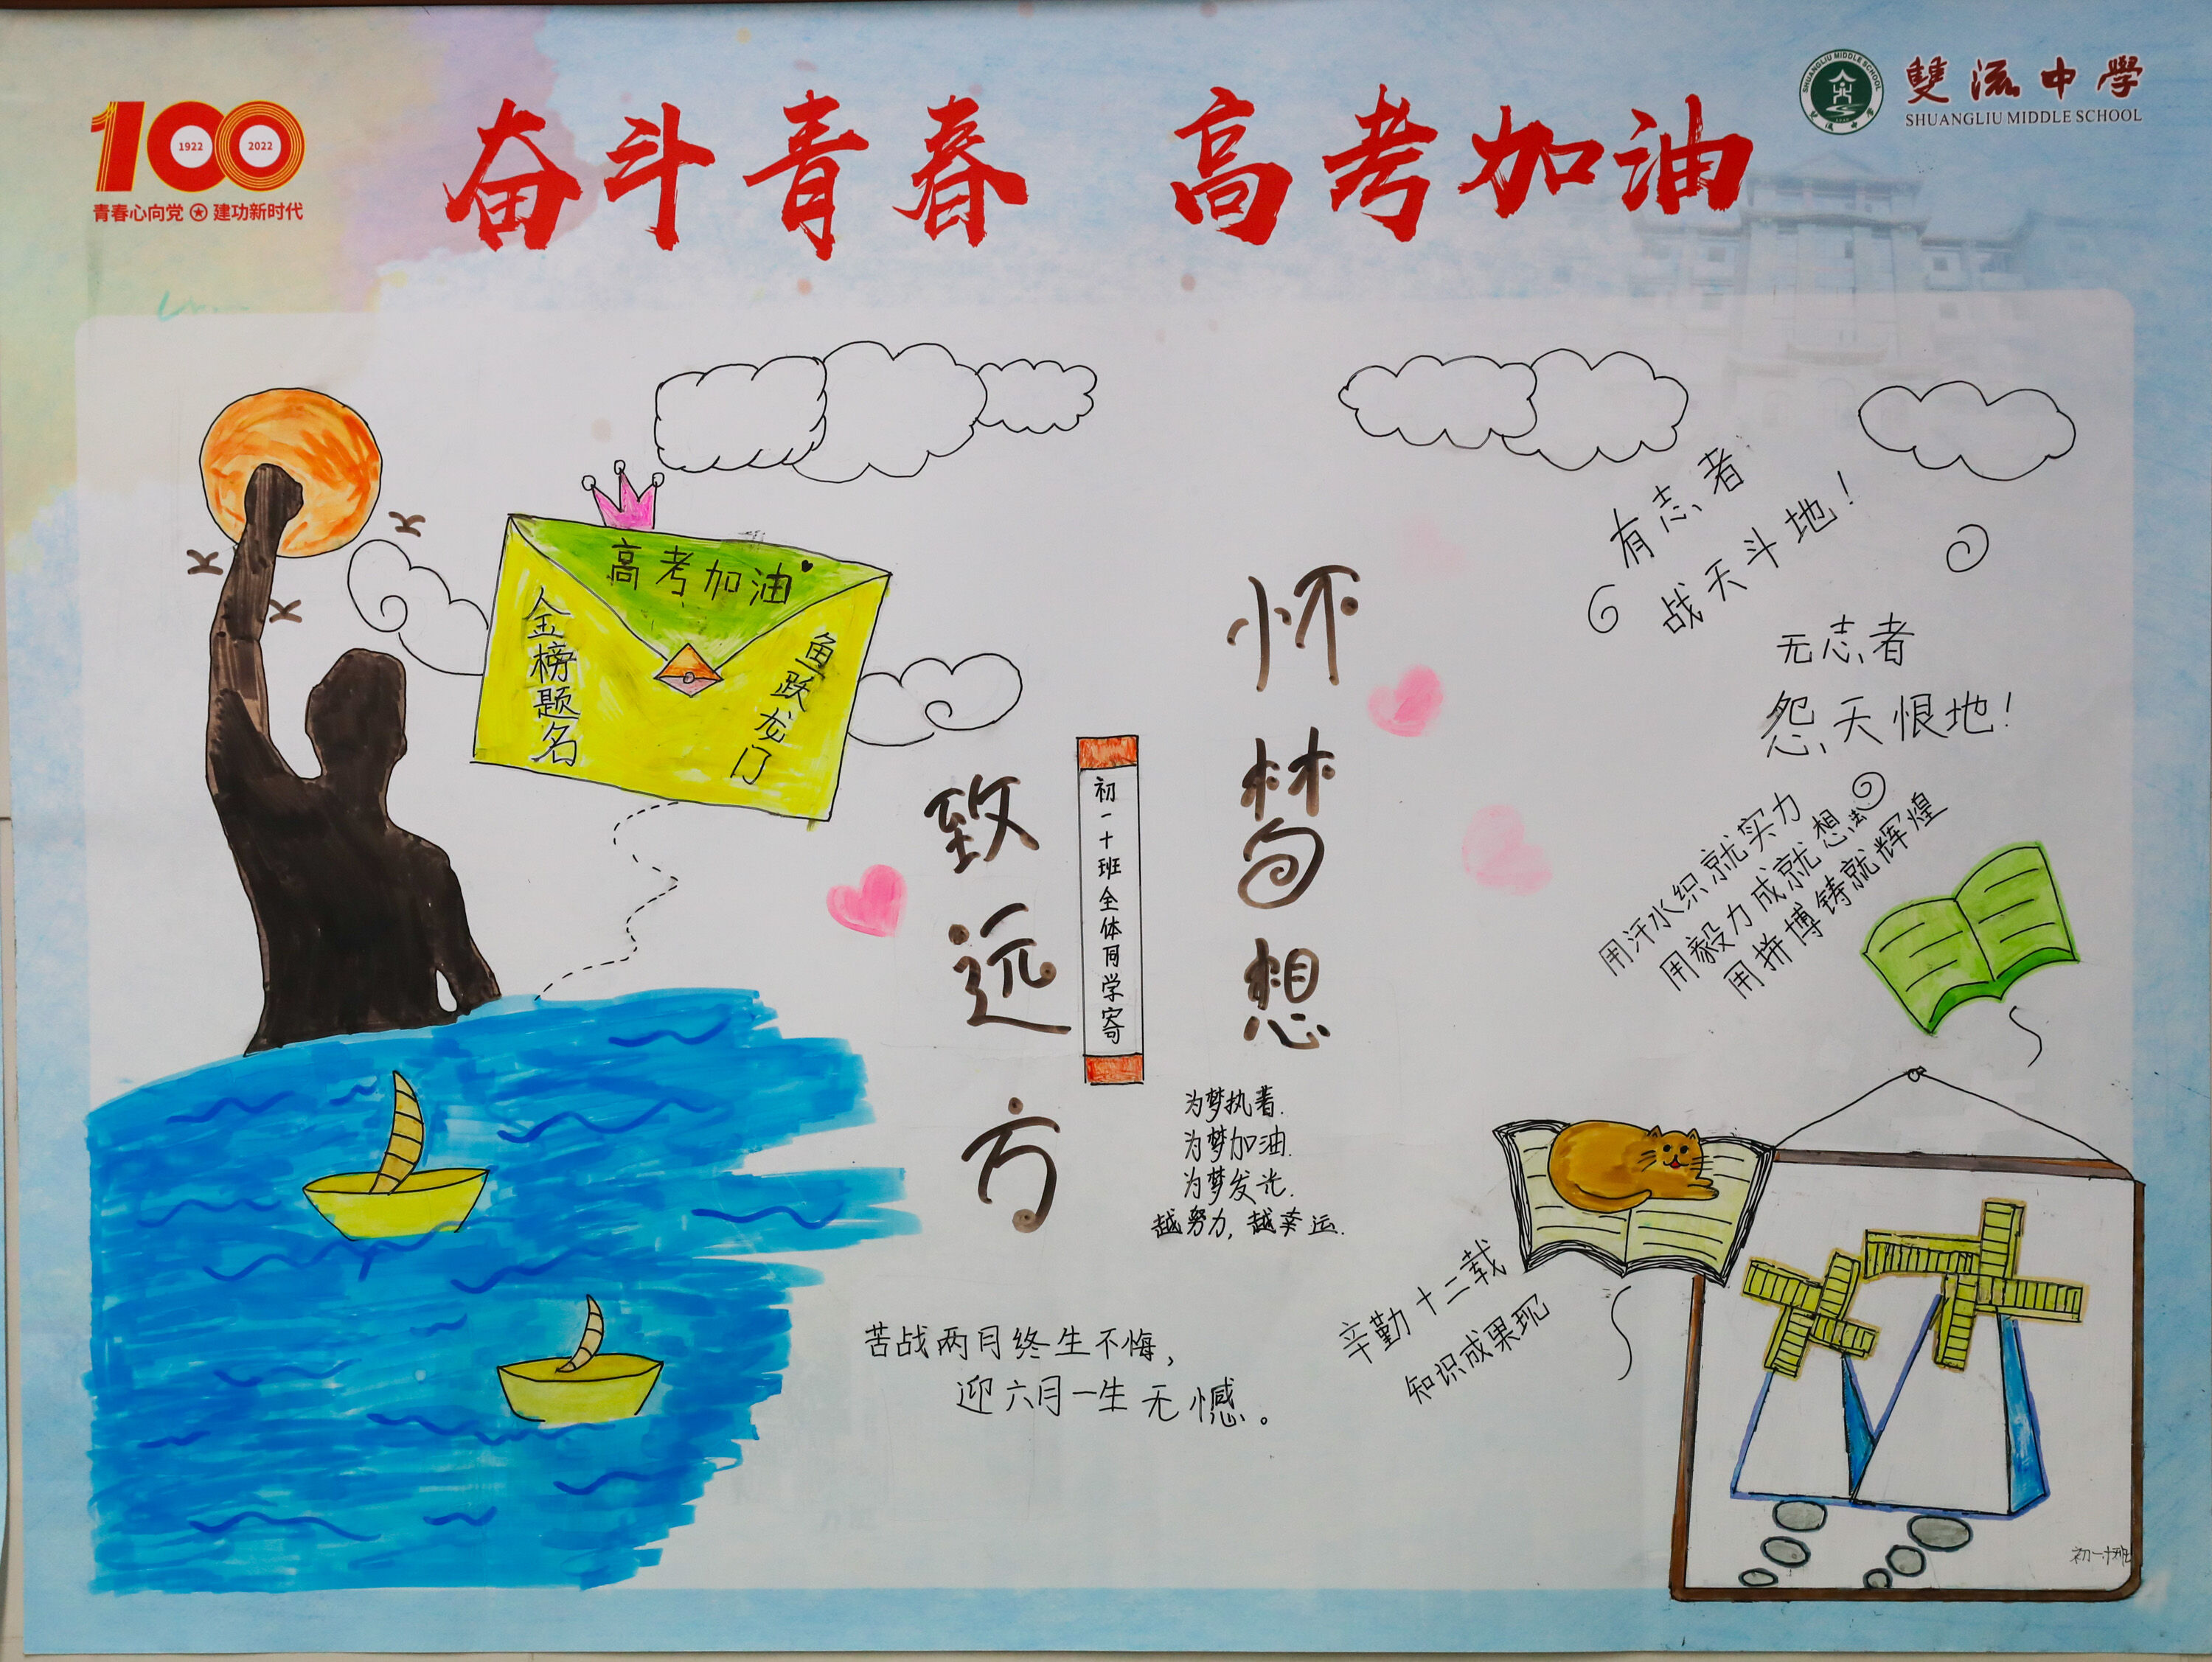 100
1922
2022
青春心向党 建功新时代
奋斗青春 高考加油
SHUANGLIU MIDDLE SCHOOL
雙流中學
雙流中學
SHUANGLIU MIDDLE SCHOOL
高考加油
金榜题名
鱼跃龙门
怀梦想
致远方
初一十班全体同学寄
有志者
战天斗地！
无志者
怨天恨地！
用汗水织就实力
用毅力成就想法
用拼搏铸就辉煌
为梦执着.
为梦加油.
为梦发光.
越努力,越幸运.
苦战两月终生不悔，
迎六月一生无憾。
辛勤十二载
知识成果现
初一十班